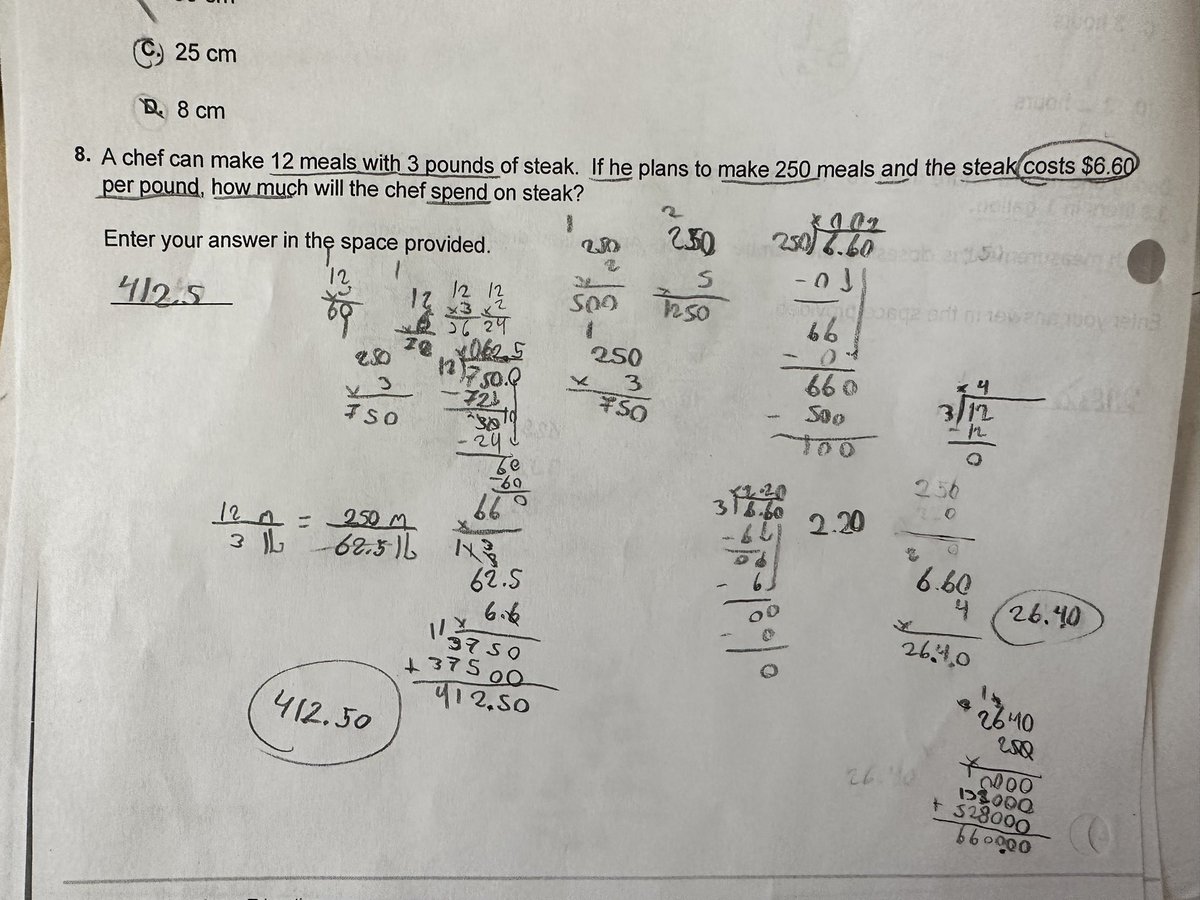 C. 25 cm
D. 8 cm
8. A chef can make 12 meals with 3 pounds of steak. If he plans to make 250 meals and the steak costs $6.60
per pound, how much will the chef spend on steak?
Enter your answer in the space provided.
412.5
12
12
x3
36
12
x2
24
250
x 3
750
062.5
12)750.0
-72
30
-24
60
-60
0
1
250
2
500
2
250
x 5
1250
1
250
x 3
750
x 002
250)6.60
-0
66
- 0
660
- 500
100
x 4
3)12
-12
0
12 m = 250 m
3 lb 62.5 lb
66
x
62.5
x 6.6
11
3750
+ 37500
412.50
412.50
2.20
3)6.60
-6
06
- 6
00
- 0
0
2.20
250
0
0
2
6.60
x 4
26.40
26.40
2640
250
x
0000
132000
+ 528000
660000
26.40